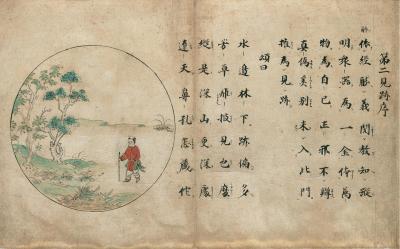 第二見跡序
依經解義閱教知蹤
明衆器為一金体萬
物為自己正邪不辨
真偽奚別未入此門
权為見跡
頌曰
水邊林下跡偏多
芳草離披見也麼
縱是深山更深處
遼天鼻孔怎藏他